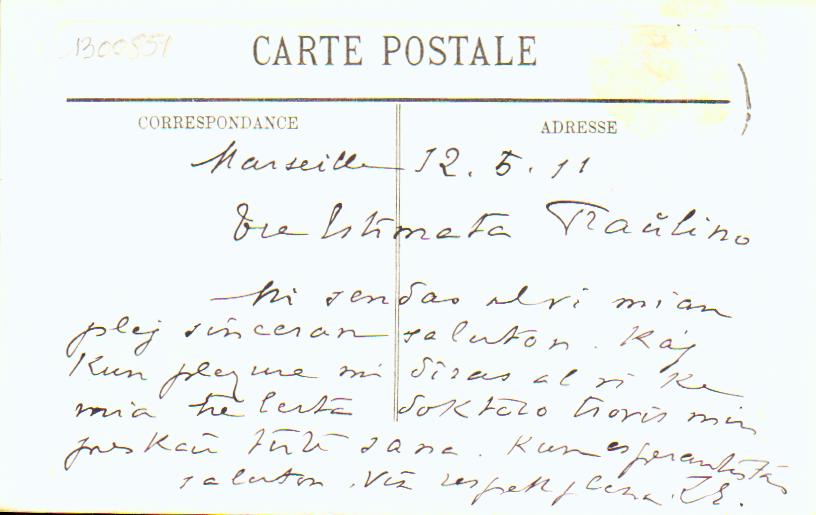 1300551
CARTE POSTALE
CORRESPONDANCE
ADRESSE
Marseille 12.5.11
Tre Estimata Fraŭlino
Mi sendas al vi mian
plej sinceran saluton. Kaj
Kun plezure mi diras al vi ke
mia tre lerta doktoro trovis min
preskaŭ tute sana. Kun esperantista
saluton. Via respektplena.